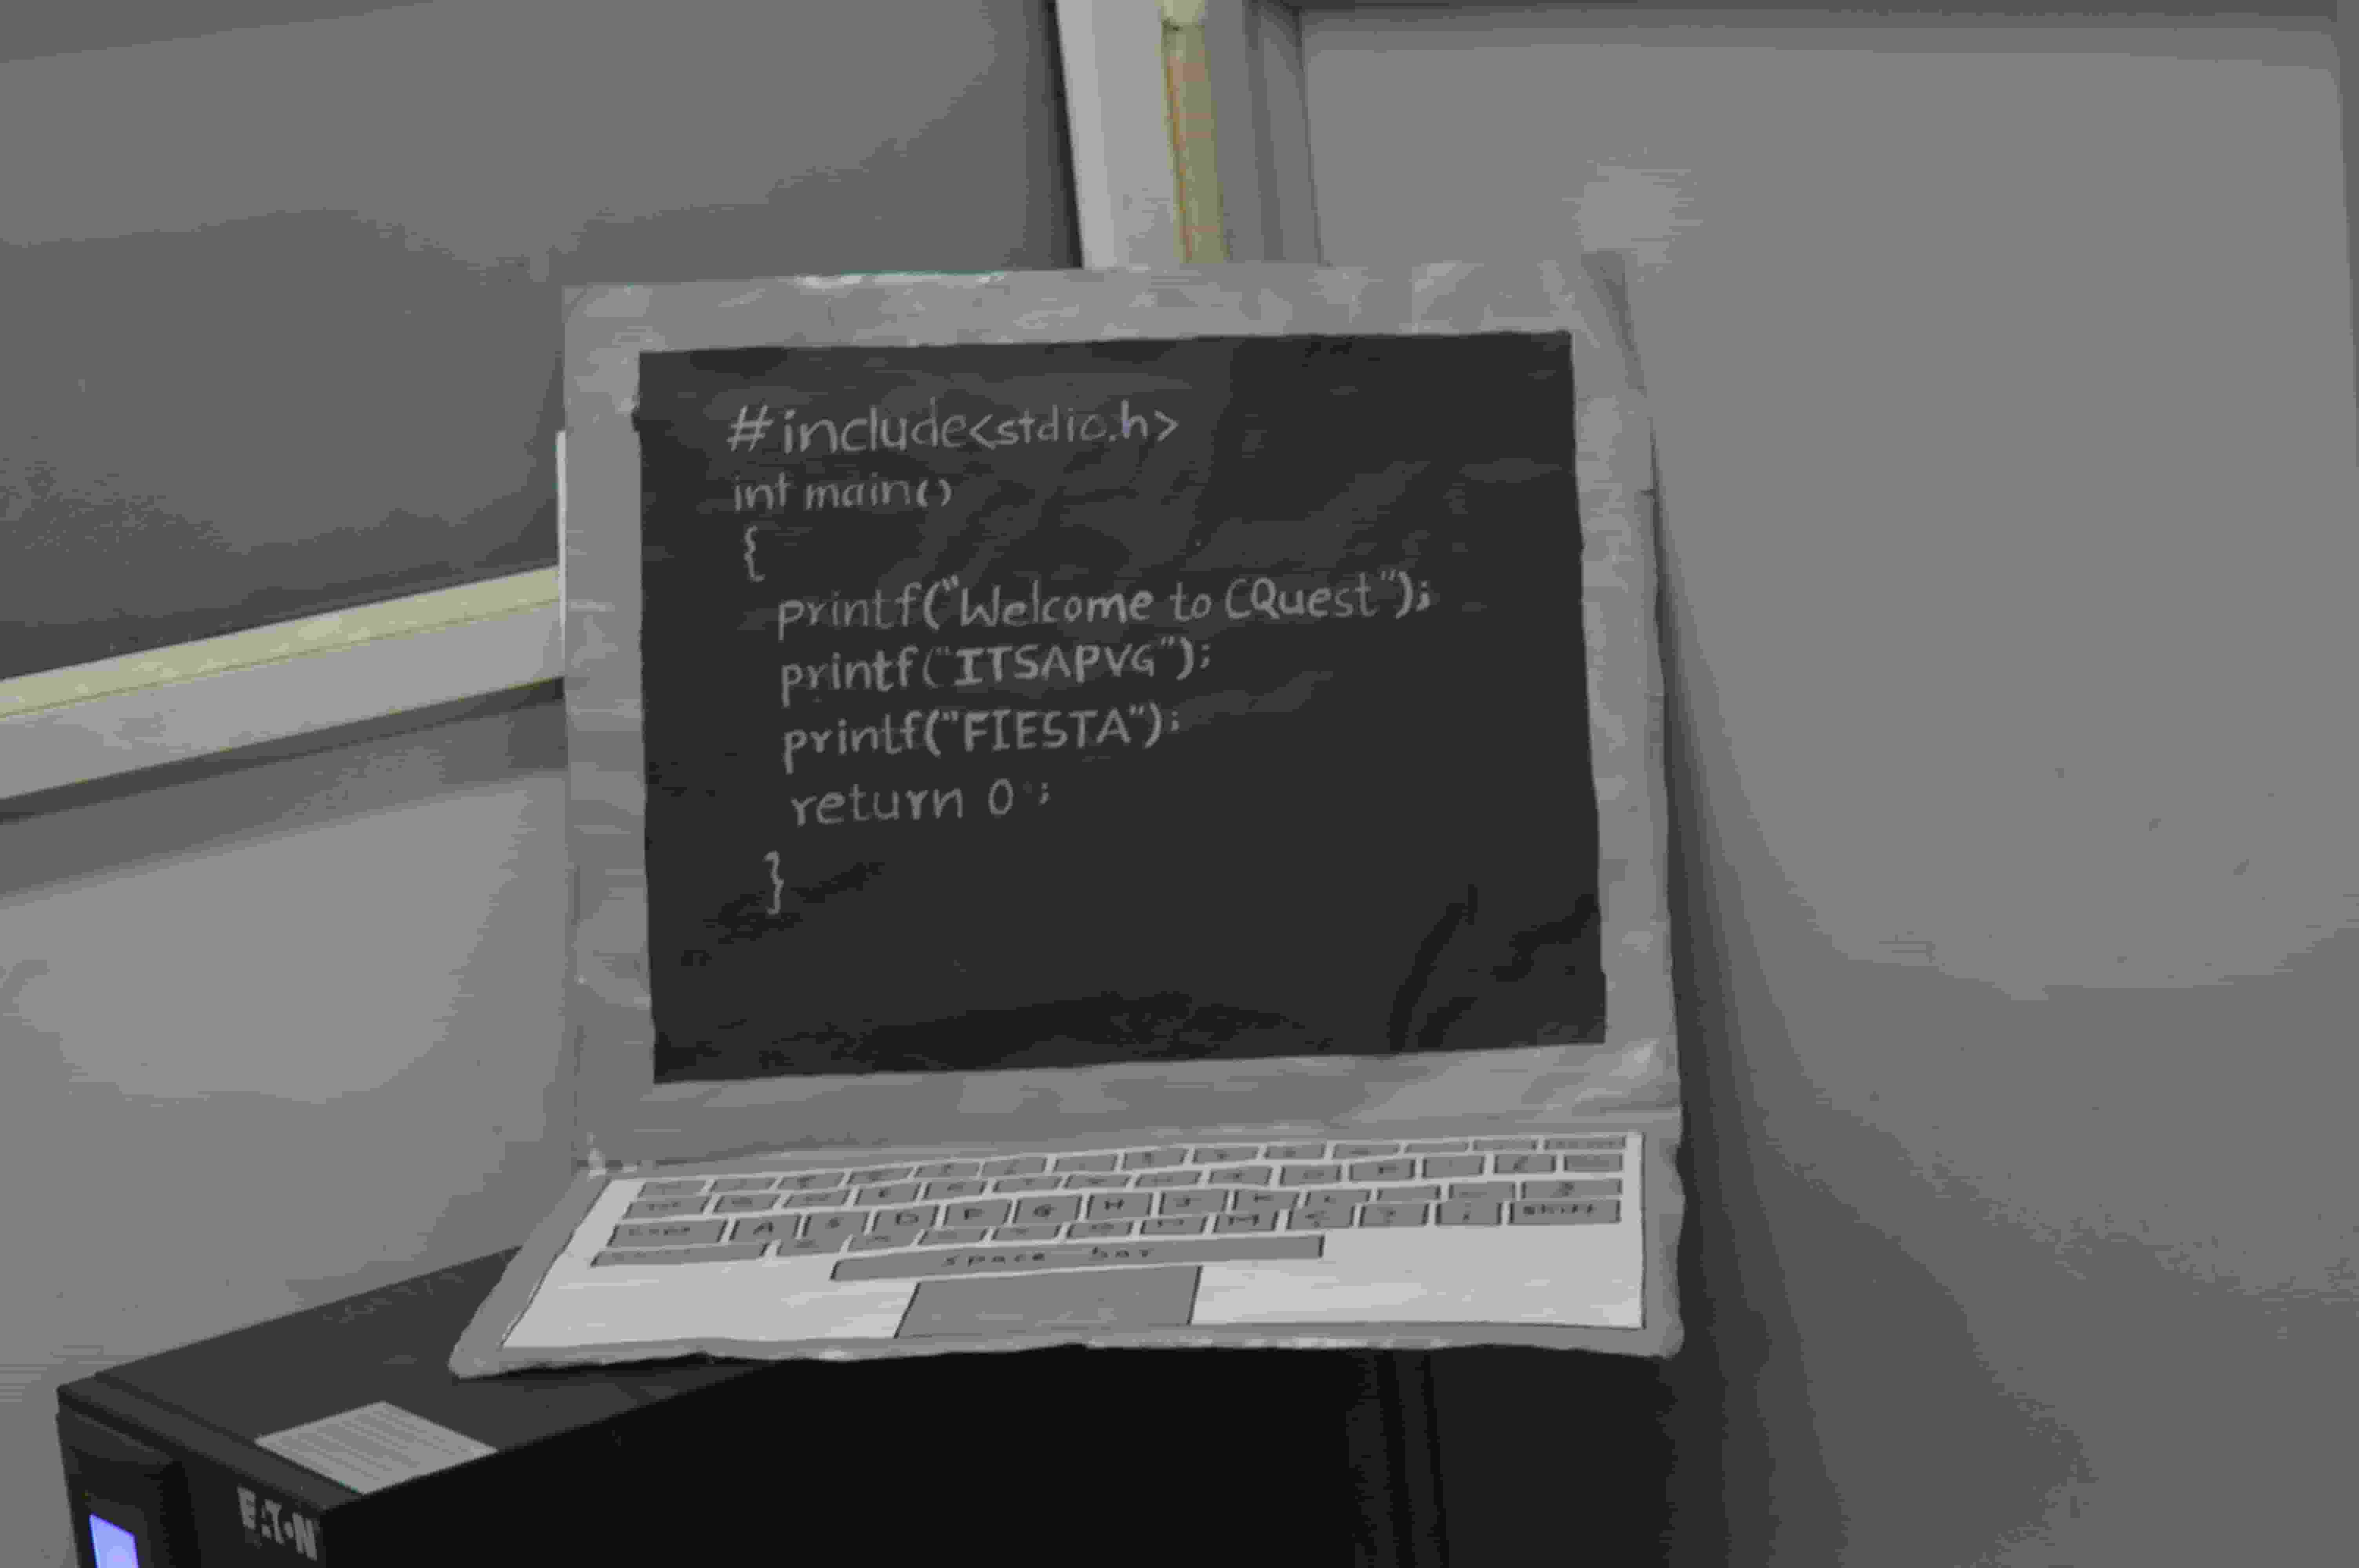 #include<stdio.h>
int main()
{
printf("Welcome to CQuest");
printf("ITSAPVG");
printf("FIESTA");
return 0;
}
A S D F G H J K
M
Shift
space bar
EATON